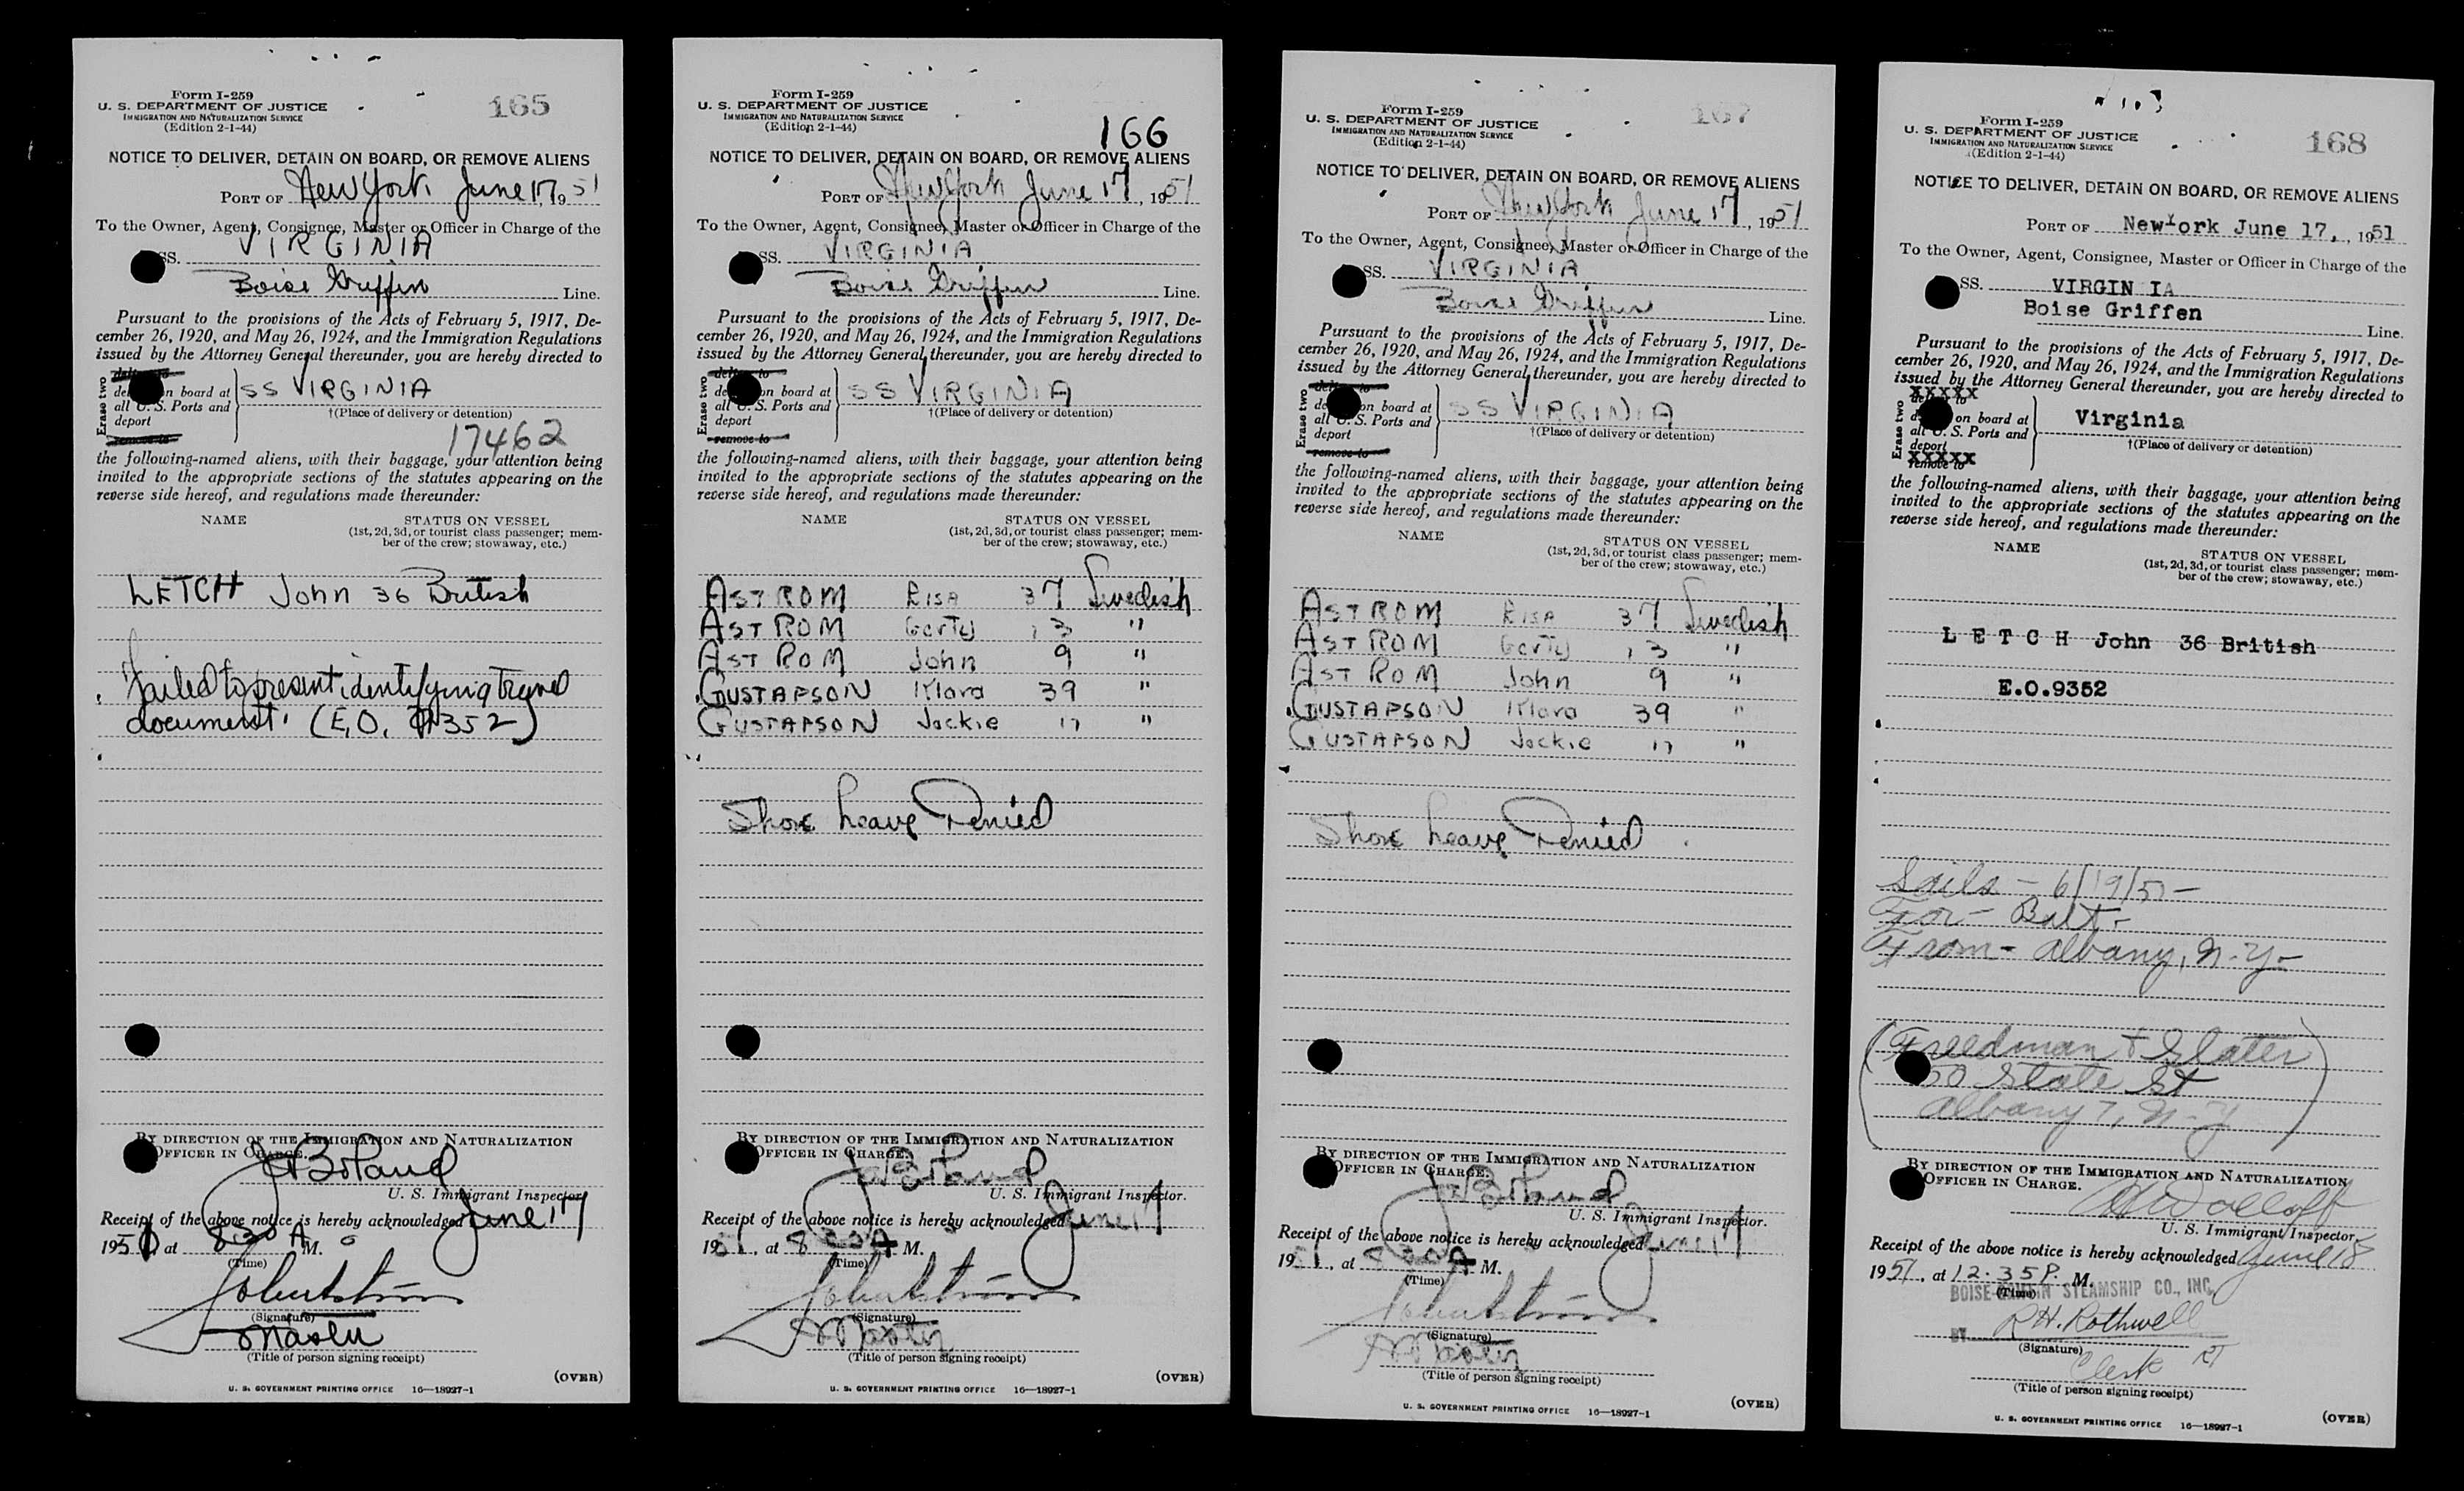 Form I-259
U. S. DEPARTMENT OF JUSTICE
IMMIGRATION AND NATURALIZATION SERVICE
(Edition 2-1-44)
165
NOTICE TO DELIVER, DETAIN ON BOARD, OR REMOVE ALIENS
PORT OF New York June 17, 1951
To the Owner, Agent, Consignee, Master or Officer in Charge of the
SS. VIRGINIA
Boise Griffen Line.
Pursuant to the provisions of the Acts of February 5, 1917, De-
cember 26, 1920, and May 26, 1924, and the Immigration Regulations
issued by the Attorney General thereunder, you are hereby directed to
Erase two
deliver to
on board at
all U. S. Ports and
deport
remove to
SS VIRGINIA
†(Place of delivery or detention)
17462
the following-named aliens, with their baggage, your attention being
invited to the appropriate sections of the statutes appearing on the
reverse side hereof, and regulations made thereunder:
NAME STATUS ON VESSEL
(1st, 2d, 3d, or tourist class passenger; mem-
ber of the crew; stowaway, etc.)
LETCH John 36 British
failed to present identifying travel
document. (E.O. 9352)
BY DIRECTION OF THE IMMIGRATION AND NATURALIZATION
OFFICER IN CHARGE.
U. S. Immigrant Inspector.
Receipt of the above notice is hereby acknowledged June 17
1951 at 8:30 A M.
(Time)
(Signature)
Master
(Title of person signing receipt)
(OVER)
U. S. GOVERNMENT PRINTING OFFICE 16—18927-1
Form I-259
U. S. DEPARTMENT OF JUSTICE
IMMIGRATION AND NATURALIZATION SERVICE
(Edition 2-1-44)
166
NOTICE TO DELIVER, DETAIN ON BOARD, OR REMOVE ALIENS
PORT OF New York June 17, 1951
To the Owner, Agent, Consignee, Master or Officer in Charge of the
SS. VIRGINIA
Boise Griffen Line.
Pursuant to the provisions of the Acts of February 5, 1917, De-
cember 26, 1920, and May 26, 1924, and the Immigration Regulations
issued by the Attorney General thereunder, you are hereby directed to
Erase two
deliver to
on board at
all U. S. Ports and
deport
remove to
SS VIRGINIA
†(Place of delivery or detention)
the following-named aliens, with their baggage, your attention being
invited to the appropriate sections of the statutes appearing on the
reverse side hereof, and regulations made thereunder:
NAME STATUS ON VESSEL
(1st, 2d, 3d, or tourist class passenger; mem-
ber of the crew; stowaway, etc.)
ASTROM Elsa 37 Swedish
ASTROM 13 "
ASTROM John 9 "
GUSTAFSON Klara 39 "
GUSTAFSON Jackie "
Shore Leave Denied
BY DIRECTION OF THE IMMIGRATION AND NATURALIZATION
OFFICER IN CHARGE.
U. S. Immigrant Inspector.
Receipt of the above notice is hereby acknowledged June 17
1951, at 8 30 A M.
(Time)
(Signature)
Master
(Title of person signing receipt)
(OVER)
U. S. GOVERNMENT PRINTING OFFICE 16—18927-1
Form I-259
U. S. DEPARTMENT OF JUSTICE
IMMIGRATION AND NATURALIZATION SERVICE
(Edition 2-1-44)
167
NOTICE TO DELIVER, DETAIN ON BOARD, OR REMOVE ALIENS
PORT OF New York June 17, 1951
To the Owner, Agent, Consignee, Master or Officer in Charge of the
SS. VIRGINIA
Boise Griffen Line.
Pursuant to the provisions of the Acts of February 5, 1917, De-
cember 26, 1920, and May 26, 1924, and the Immigration Regulations
issued by the Attorney General thereunder, you are hereby directed to
Erase two
deliver to
on board at
all U. S. Ports and
deport
remove to
SS VIRGINIA
†(Place of delivery or detention)
the following-named aliens, with their baggage, your attention being
invited to the appropriate sections of the statutes appearing on the
reverse side hereof, and regulations made thereunder:
NAME STATUS ON VESSEL
(1st, 2d, 3d, or tourist class passenger; mem-
ber of the crew; stowaway, etc.)
ASTROM Elsa 37 Swedish
ASTROM 13 "
ASTROM John 9 "
GUSTAFSON Klara 39 "
GUSTAFSON Jackie "
Shore Leave Denied
BY DIRECTION OF THE IMMIGRATION AND NATURALIZATION
OFFICER IN CHARGE.
U. S. Immigrant Inspector.
Receipt of the above notice is hereby acknowledged June 17
1951, at 8 30 A M.
(Time)
(Signature)
Master
(Title of person signing receipt)
(OVER)
U. S. GOVERNMENT PRINTING OFFICE 16—18927-1
Form I-259
U. S. DEPARTMENT OF JUSTICE
IMMIGRATION AND NATURALIZATION SERVICE
(Edition 2-1-44)
168
NOTICE TO DELIVER, DETAIN ON BOARD, OR REMOVE ALIENS
PORT OF New York June 17, , 1951
To the Owner, Agent, Consignee, Master or Officer in Charge of the
SS. VIRGINIA
Boise Griffen
Line.
Pursuant to the provisions of the Acts of February 5, 1917, De-
cember 26, 1920, and May 26, 1924, and the Immigration Regulations
issued by the Attorney General thereunder, you are hereby directed to
XXXXX
Erase two
deliver to
on board at
all U. S. Ports and
deport
XXXXX
remove to
Virginia
†(Place of delivery or detention)
the following-named aliens, with their baggage, your attention being
invited to the appropriate sections of the statutes appearing on the
reverse side hereof, and regulations made thereunder:
NAME STATUS ON VESSEL
(1st, 2d, 3d, or tourist class passenger; mem-
ber of the crew; stowaway, etc.)
L E T C H John 36 British
E.O.9352
Sails - 6/19/51 -
For - Balt -
From - Albany, N.Y. -
(Freedman + Slater
50 State St
Albany 7, N.Y.)
BY DIRECTION OF THE IMMIGRATION AND NATURALIZATION
OFFICER IN CHARGE.
U. S. Immigrant Inspector.
Receipt of the above notice is hereby acknowledged June 18
1951, at 12:35 P. M.
(Time)
BOISE-GRIFFIN STEAMSHIP CO., INC.
BY R.H. Rothwell
(Signature)
Clerk
(Title of person signing receipt)
(OVER)
U. S. GOVERNMENT PRINTING OFFICE 16—18927-1